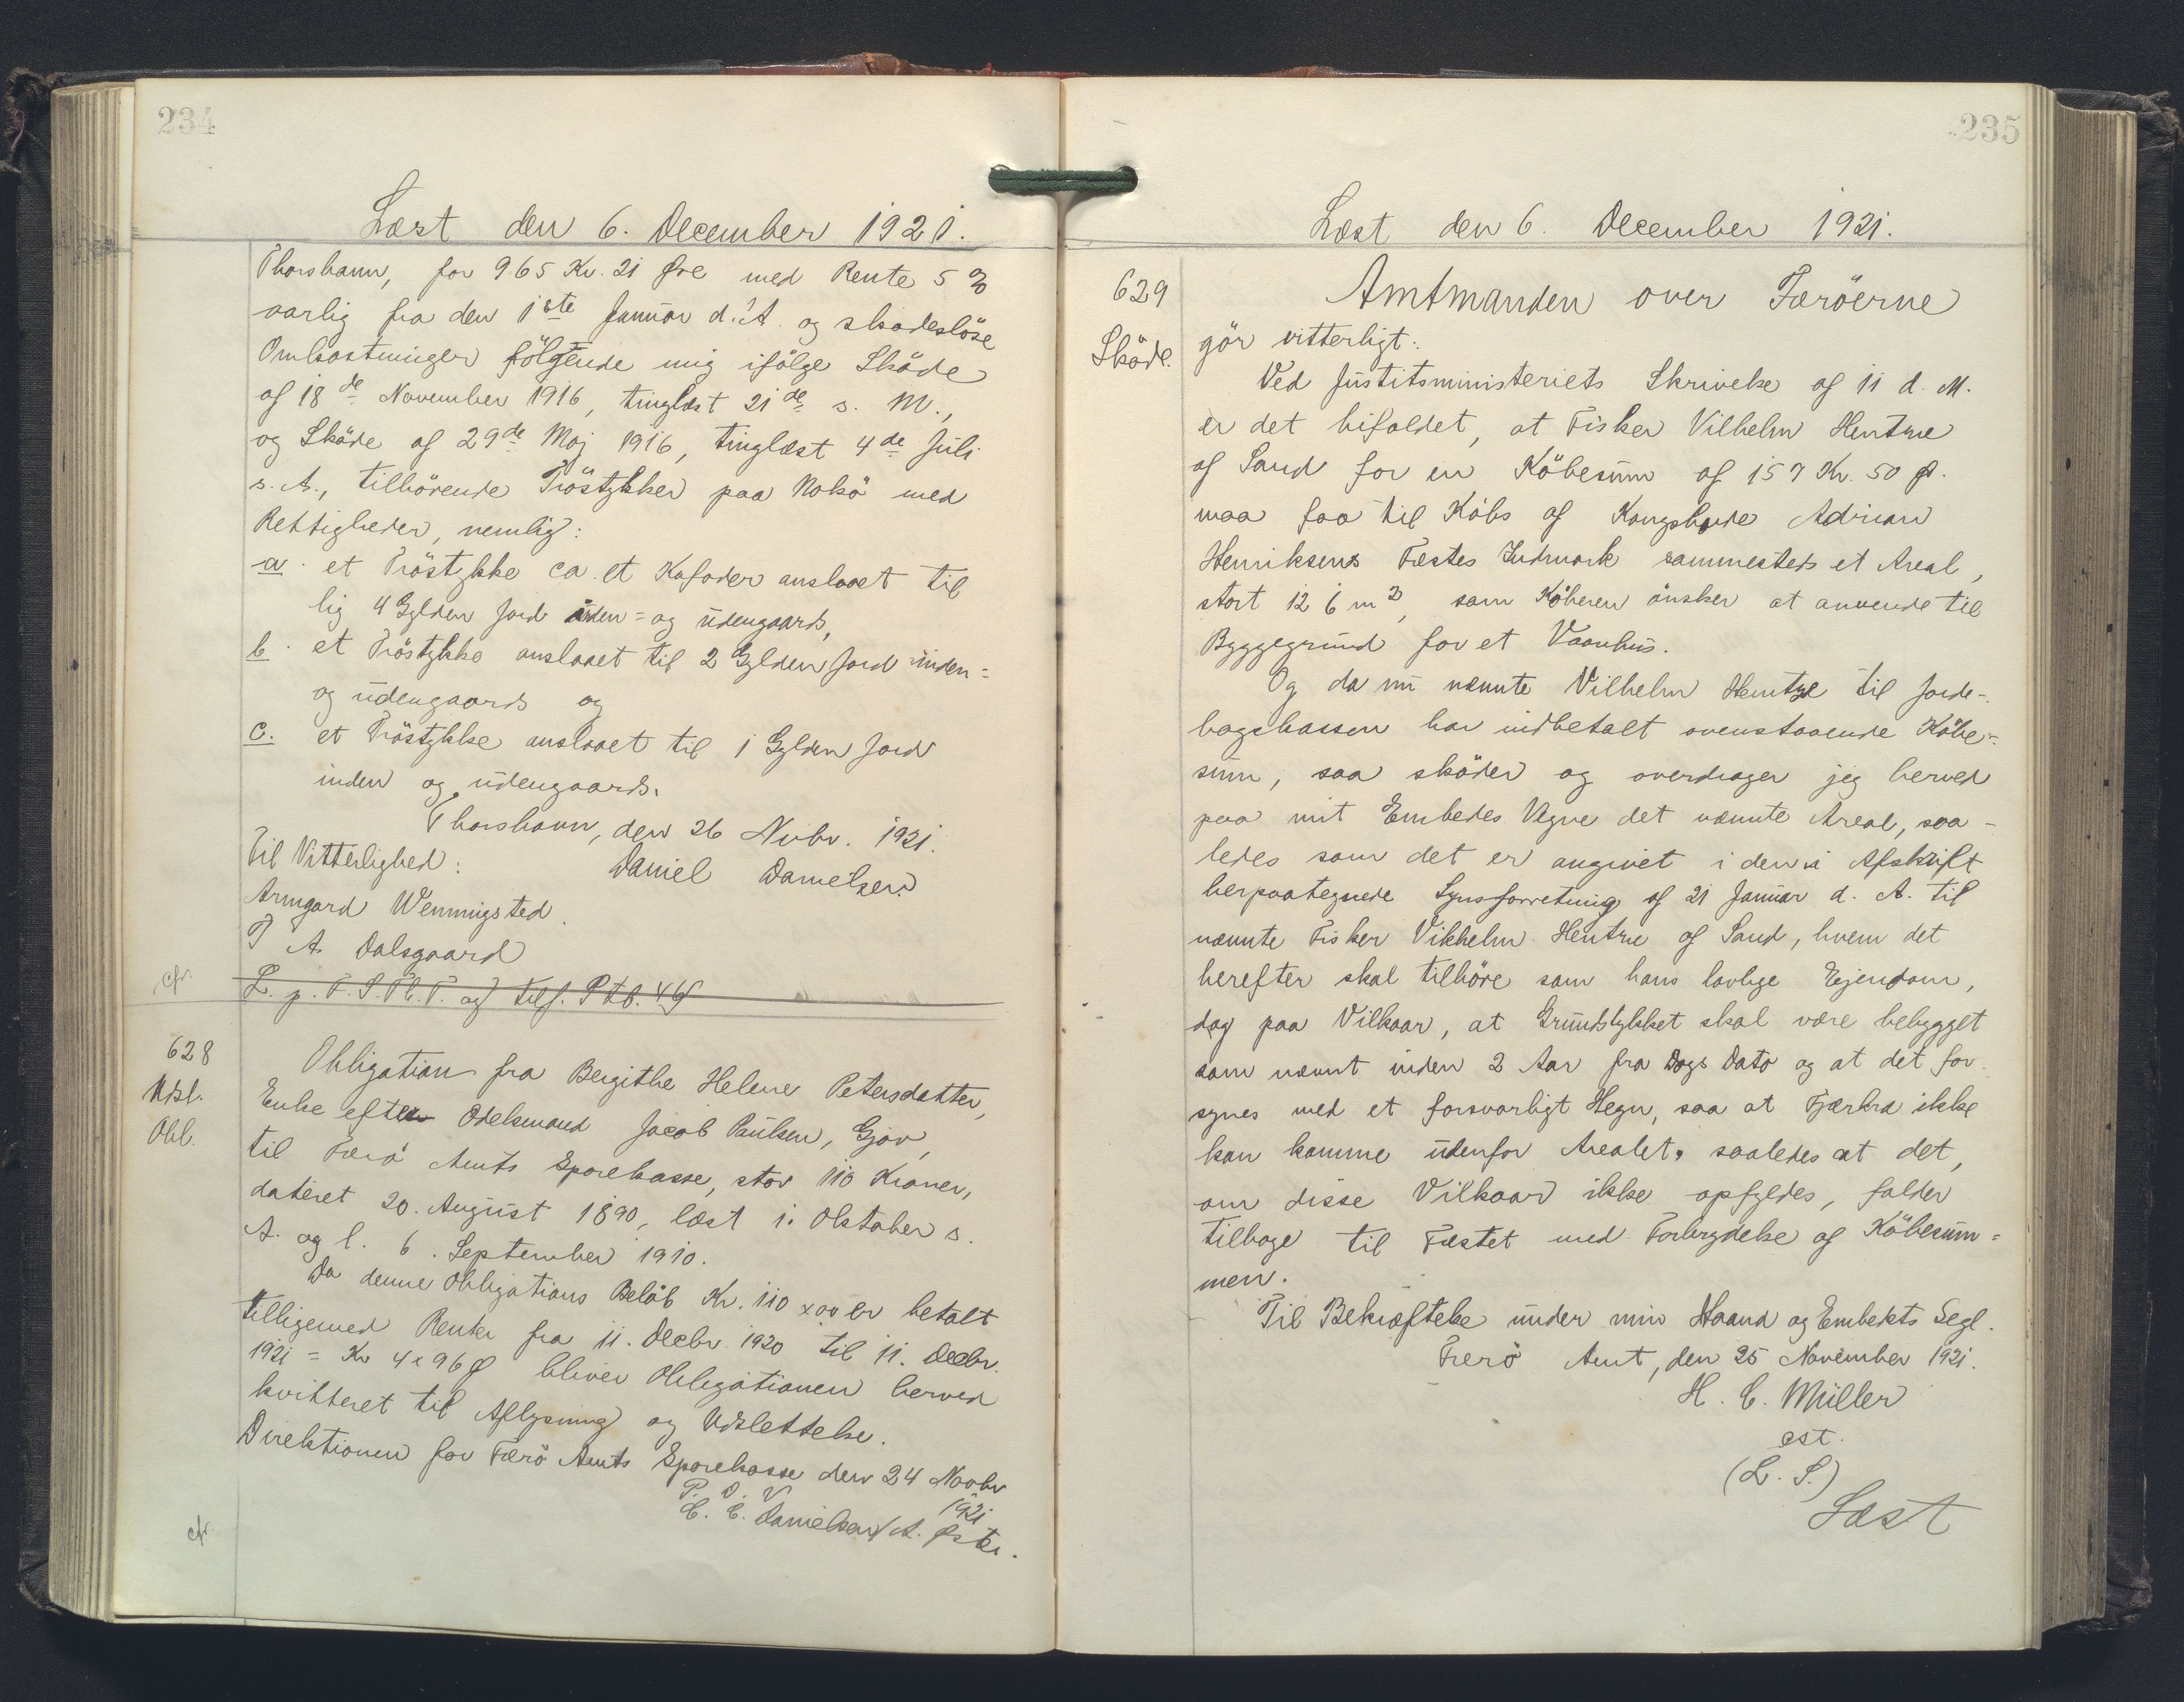 234
Læst den 6. December 1921.
Thorshavn, for 965 Kr. 21 Øre med Rente 5 %
aarlig fra den 1ste Januar d. A. og skadesløse
Omkostninger følgende mig ifølge Skøde
af 18de November 1916, tinglæst 21de s. M.,
og Skøde af 29de Maj 1916, tinglæst 4de Juli
s. A., tilhørende Trøstykker paa Nolsø med
Rettigheder, nemlig:
a. et Trøstykke ca. et Kofoder anslaaet til
lig 4 Gylden Jord inden= og udengaards,
b. et Trøstykke anslaaet til 2 Gylden Jord inden=
og udengaards og
c. et Trøstykke anslaaet til 1 Gylden Jord
inden og udengaards.
Thorshavn, den 26 Novbr. 1921.
Til Vitterlighed: Daniel Danielsen
Armgard Wenningsted.
J A Dalsgaard
cfr. L. p. T. S. Pl. T. og tilf. P t b. 44
628
Udsl.
Obl.
Obligation fra Bergithe Helene Petersdatter,
Enke efter Odelsmand Jacob Paulsen, Gjov,
til Færø Amts Sparekasse, stor 110 Kroner,
dateret 20. August 1890, læst 1. Oktober s.
A. og l. 6. September 1910.
Da denne Obligations Beløb Kr. 110 x 00 er betalt
tilligemed Renter fra 11. Decbr. 1920 til 11. Decbr.
1921 = Kr 4 x 96 Ø bliver Obligationen herved
kvitteret til Aflysning og Udslettelse.
Direktionen for Færø Amts Sparekasse den 24 Novbr
1921
P. D. V
C. C. Danielsen / A. Øster.
cfr.
235
Læst den 6. December 1921.
629
Skøde.
Amtmanden over Færøerne
gør vitterligt:
Ved Justitsministeriets Skrivelse af 11 d. M.
er det bifaldet, at Fisker Vilhelm Hentze
af Sand for en Købesum af 157 Kr. 50 Ø.
maa faa til Købs af Kongsbonde Adrian
Henriksens Fæstes Indmark sammesteds et Areal,
stort 126 m2, som Køberen ønsker at anvende til
Byggegrund for et Vaanhus.
Og da nu nævnte Vilhelm Hentze til Jorde-
bogskassen har indbetalt ovenstaaende Købe-
sum, saa skøder og overdrager jeg herved
paa mit Embedes Vegne det nævnte Areal, saa-
ledes som det er angivet i den i Afskrift
herpaategnede Synsforretning af 21 Januar d. A. til
nævnte Fisker Vilhelm Hentze af Sand, hvem det
herefter skal tilhøre som hans lovlige Ejendom,
dog paa Vilkaar, at Grundstykket skal være bebygget
som nævnt inden 2 Aar fra Dags Dato og at det for
synes med et forsvarligt Hegn, saa at Fjærkræ ikke
kan komme udenfor Arealet, saaledes at det,
om disse Vilkaar ikke opfyldes, falder
tilbage til Fæstet med Forbrydelse af Købesum=
men.
Til Bekræftelse under min Haand og Embedets Segl.
Færø Amt, den 25 November 1921.
H. C. Müller
cst.
(L. S.)
Læst